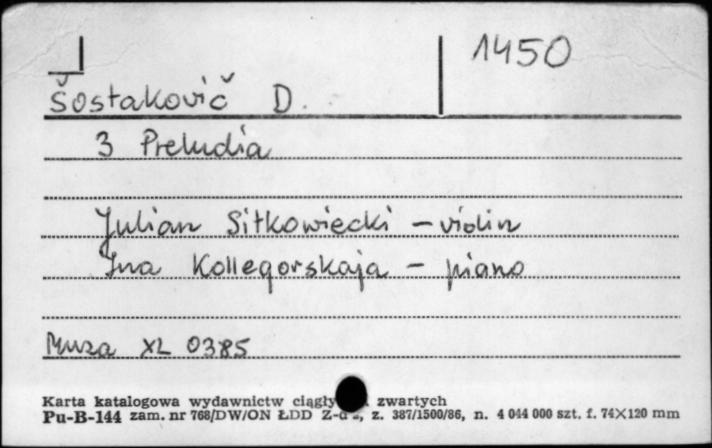 1450
Šostakovič D.
3 Preludia
Julian Sitkowiecki – violin
Ina Kollegorskaja – piano
Muza XL 0385
Karta katalogowa wydawnictw zwartych
Pu-B-144 zam. nr 768/DW/ON ŁDD z. 387/1500/86, n. 4 044 000 szt. f. 74×120 mm